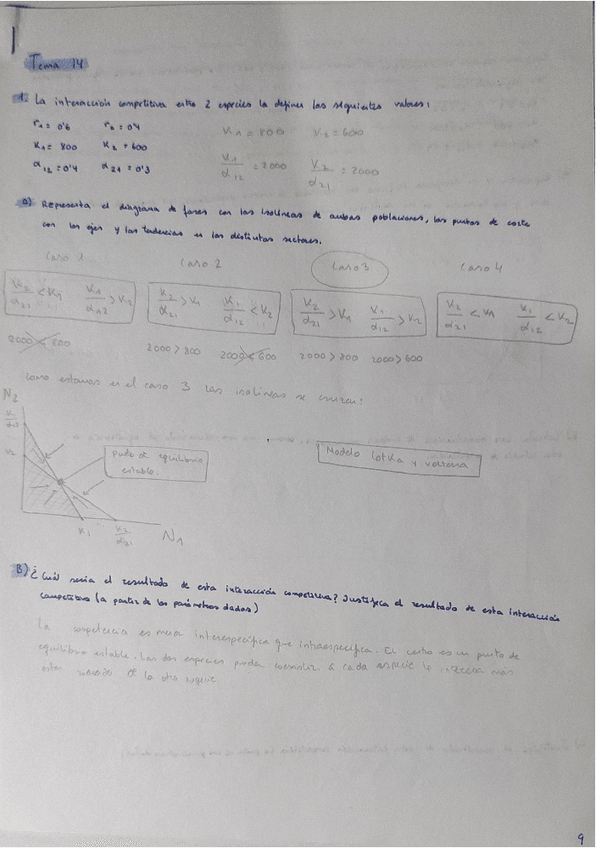 Tema 14
1. La interacción competitiva entre 2 especies la definen los siguientes valores:
r1 = 0'6 r2 = 0'4 K1 = 800 K2 = 600
K1 = 800 K2 = 600 K1/α12 = 2000 K2/α21 = 2000
α12 = 0'4 α21 = 0'3
a) Representa el diagrama de fases con las isolíneas de ambas poblaciones, los puntos de corte
con los ejes y las tendencias en los distintos sectores.
Caso 1 Caso 2 Caso 3 Caso 4
K2/α21 < K1 K1/α12 > K2 K2/α21 > K1 K1/α12 < K2 K2/α21 > K1 K1/α12 > K2 K2/α21 < K1 K1/α12 < K2
2000 < 800 2000 > 800 2000 < 600 2000 > 800 2000 > 600
Como estamos en el caso 3 las isolíneas se cruzan:
N2
K1/α12
K2
punto de equilibrio
estable.
Modelo Lotka y Volterra
K1 K2/α21 N1
B) ¿Cuál sería el resultado de esta interacción competitiva? Justifica el resultado de esta interacción
competitiva (a partir de los parámetros dados)
La competencia es menor interespecífica que intraespecífica. El centro es un punto de
equilibrio estable. Las dos especies pueden coexistir. A cada especie le afecta más
de la otra especie
9